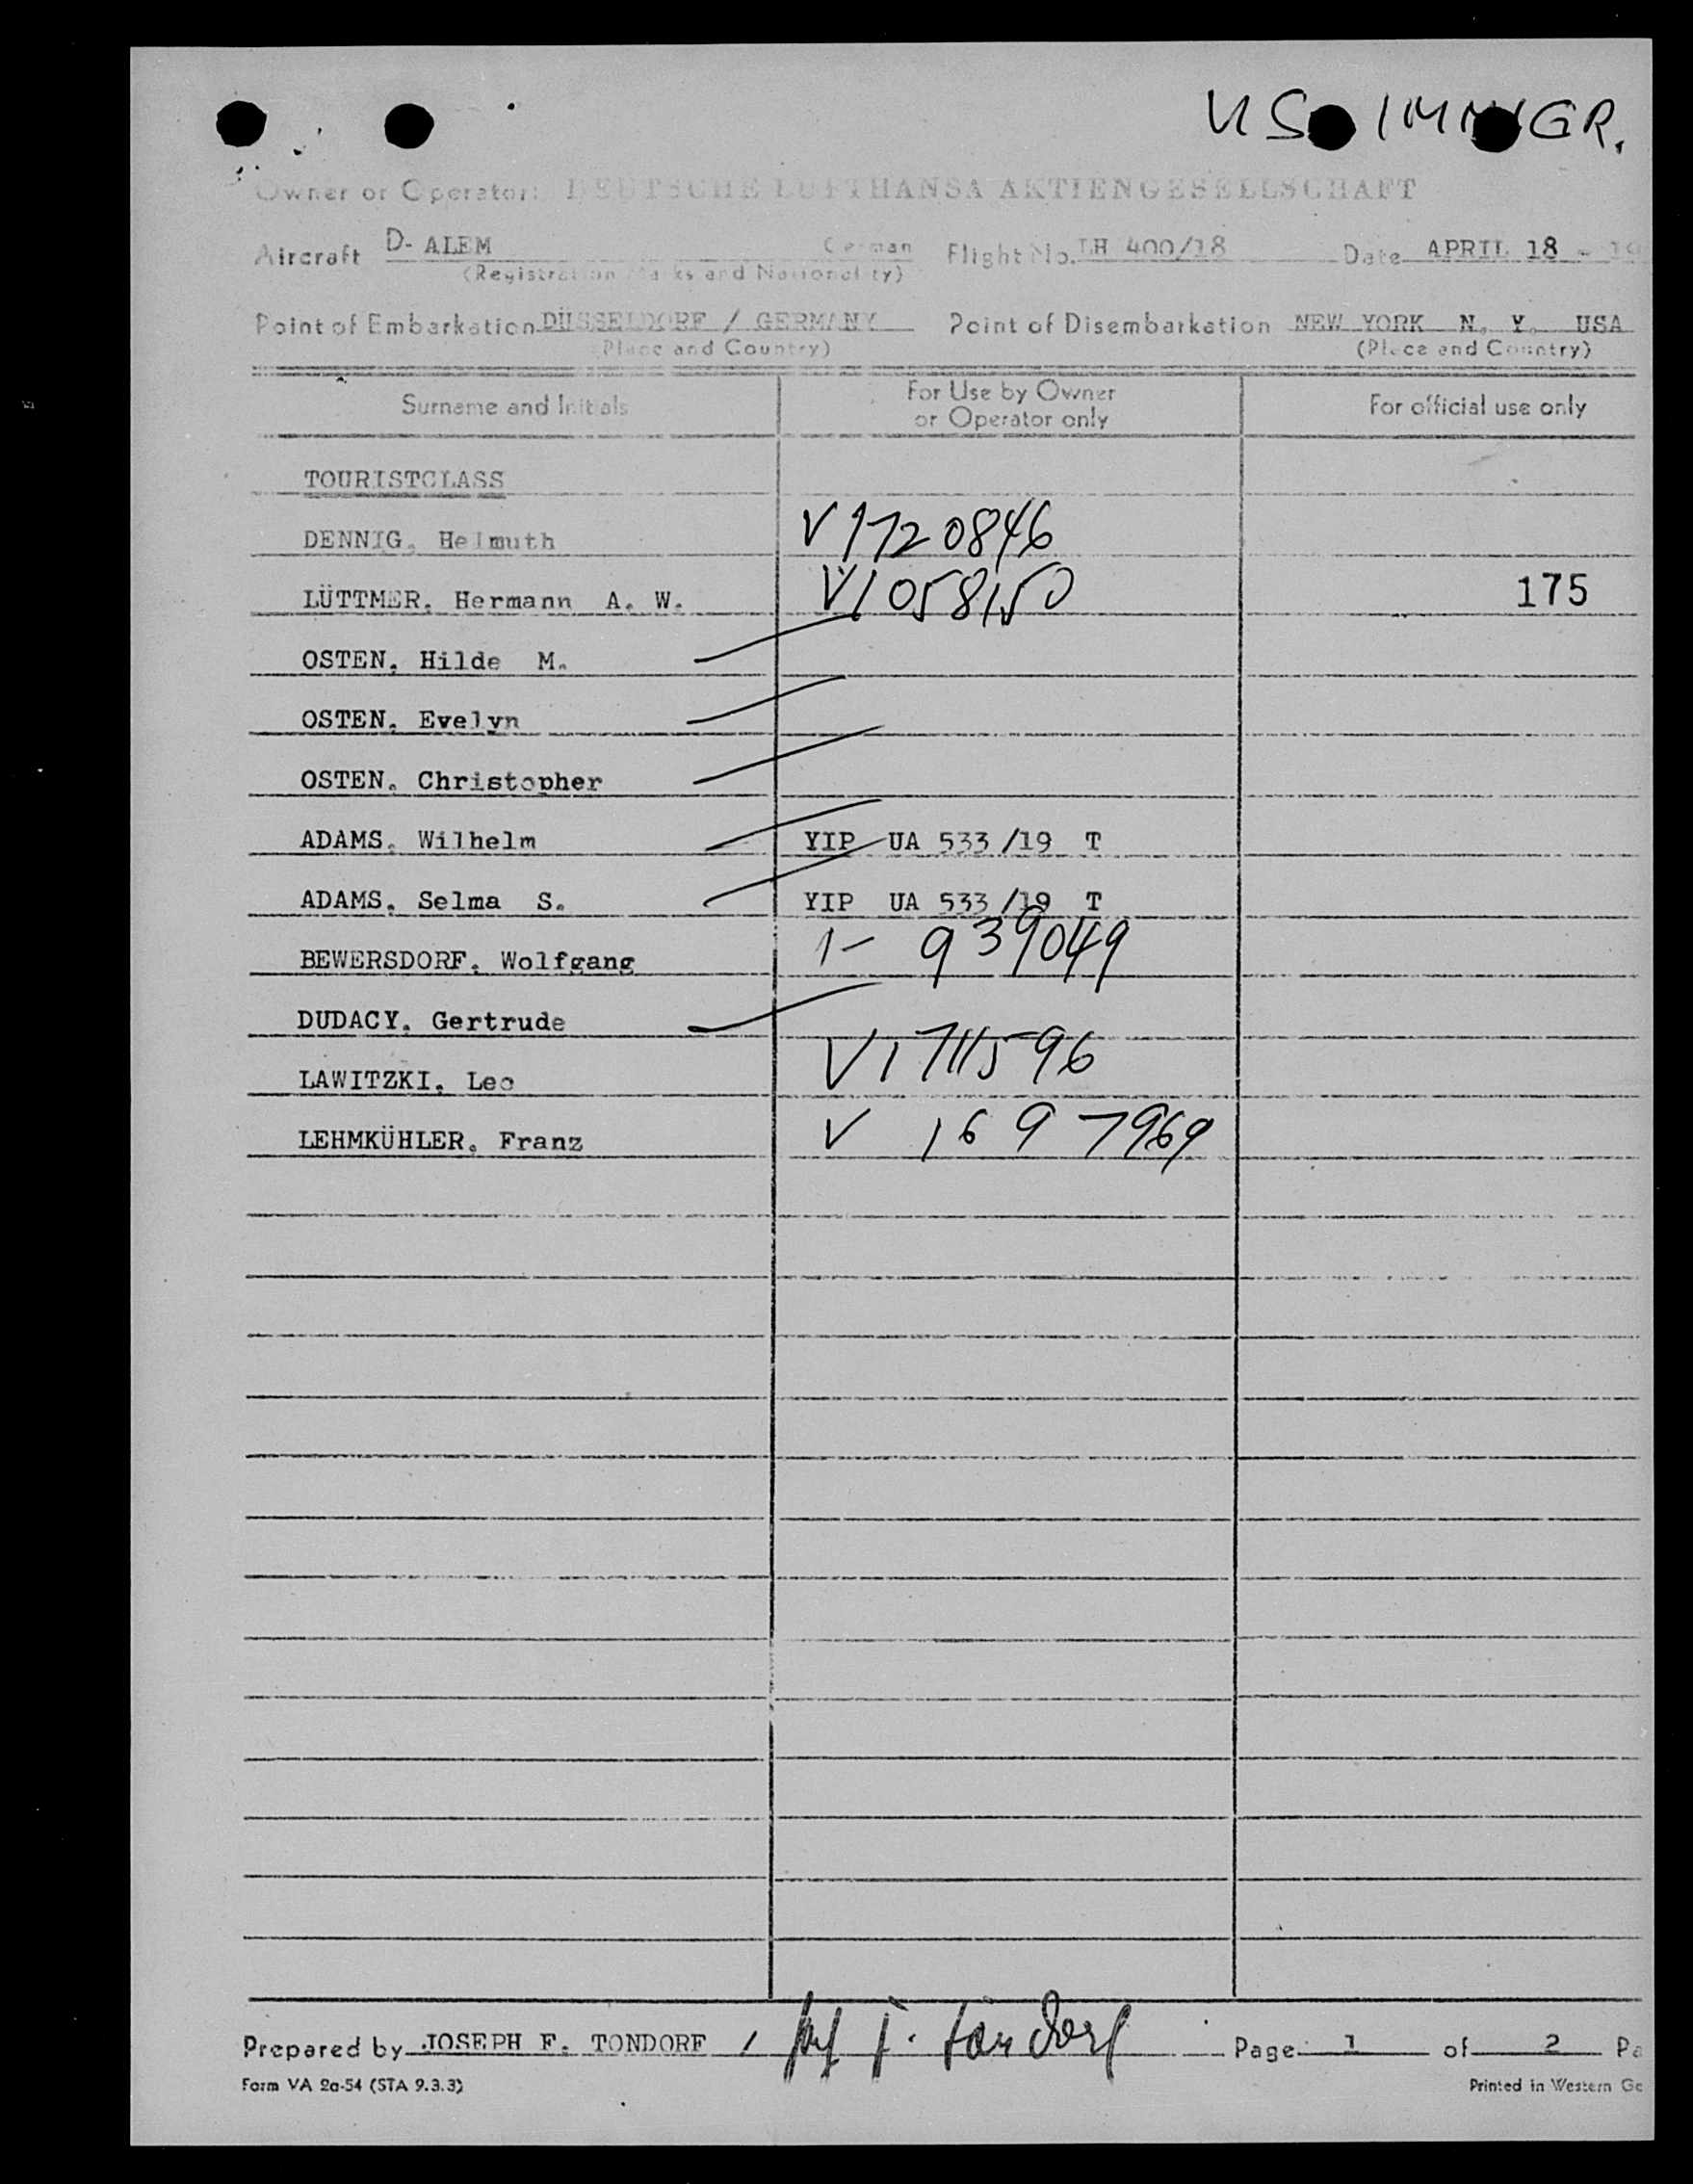 US IMMIGR.
Owner or Operator: DEUTSCHE LUFTHANSA AKTIENGESELLSCHAFT
Aircraft D- ALEM German Flight No. LH 400/18 Date APRIL 18 - 19
(Registration Marks and Nationality)
Point of Embarkation DÜSSELDORF / GERMANY Point of Disembarkation NEW YORK N. Y. USA
(Place and Country) (Place and Country)
Surname and Initials For Use by Owner or Operator only For official use only
TOURISTCLASS
DENNIG, Helmuth V 1720846
LÜTTMER, Hermann A. W. V1058150 175
OSTEN, Hilde M.
OSTEN, Evelyn
OSTEN, Christopher
ADAMS, Wilhelm YIP UA 533/19 T
ADAMS, Selma S. YIP UA 533/19 T
BEWERSDORF, Wolfgang 1- 939049
DUDACY, Gertrude
LAWITZKI, Leo V1711596
LEHMKÜHLER, Franz V 1697969
Prepared by JOSEPH F. TONDORF / F. Tondorf Page 1 of 2 Pa
Form VA 2a-54 (STA 9.3.3) Printed in Western Ge